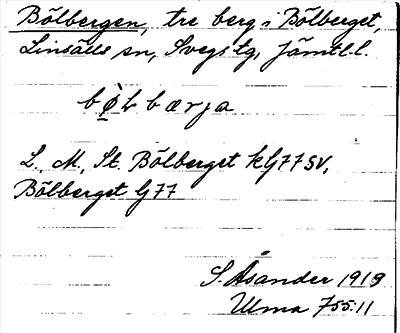 Bölbergen, tre berg i Bölberget,
Linsälls sn, Svegs tg, Jämtl.l.
bø̀Lbærja
L., M., St. Bölberget kG77SV,
Bölberget G77
S. Åsander 1919
Ulma 755:11